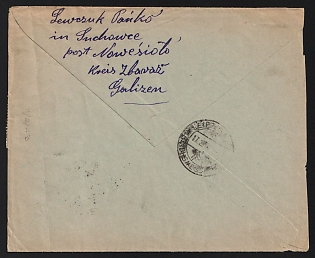 Lewczuk Pańko
in Suchowce
post Nowesioło
Kreis Zbaraż
Galizen